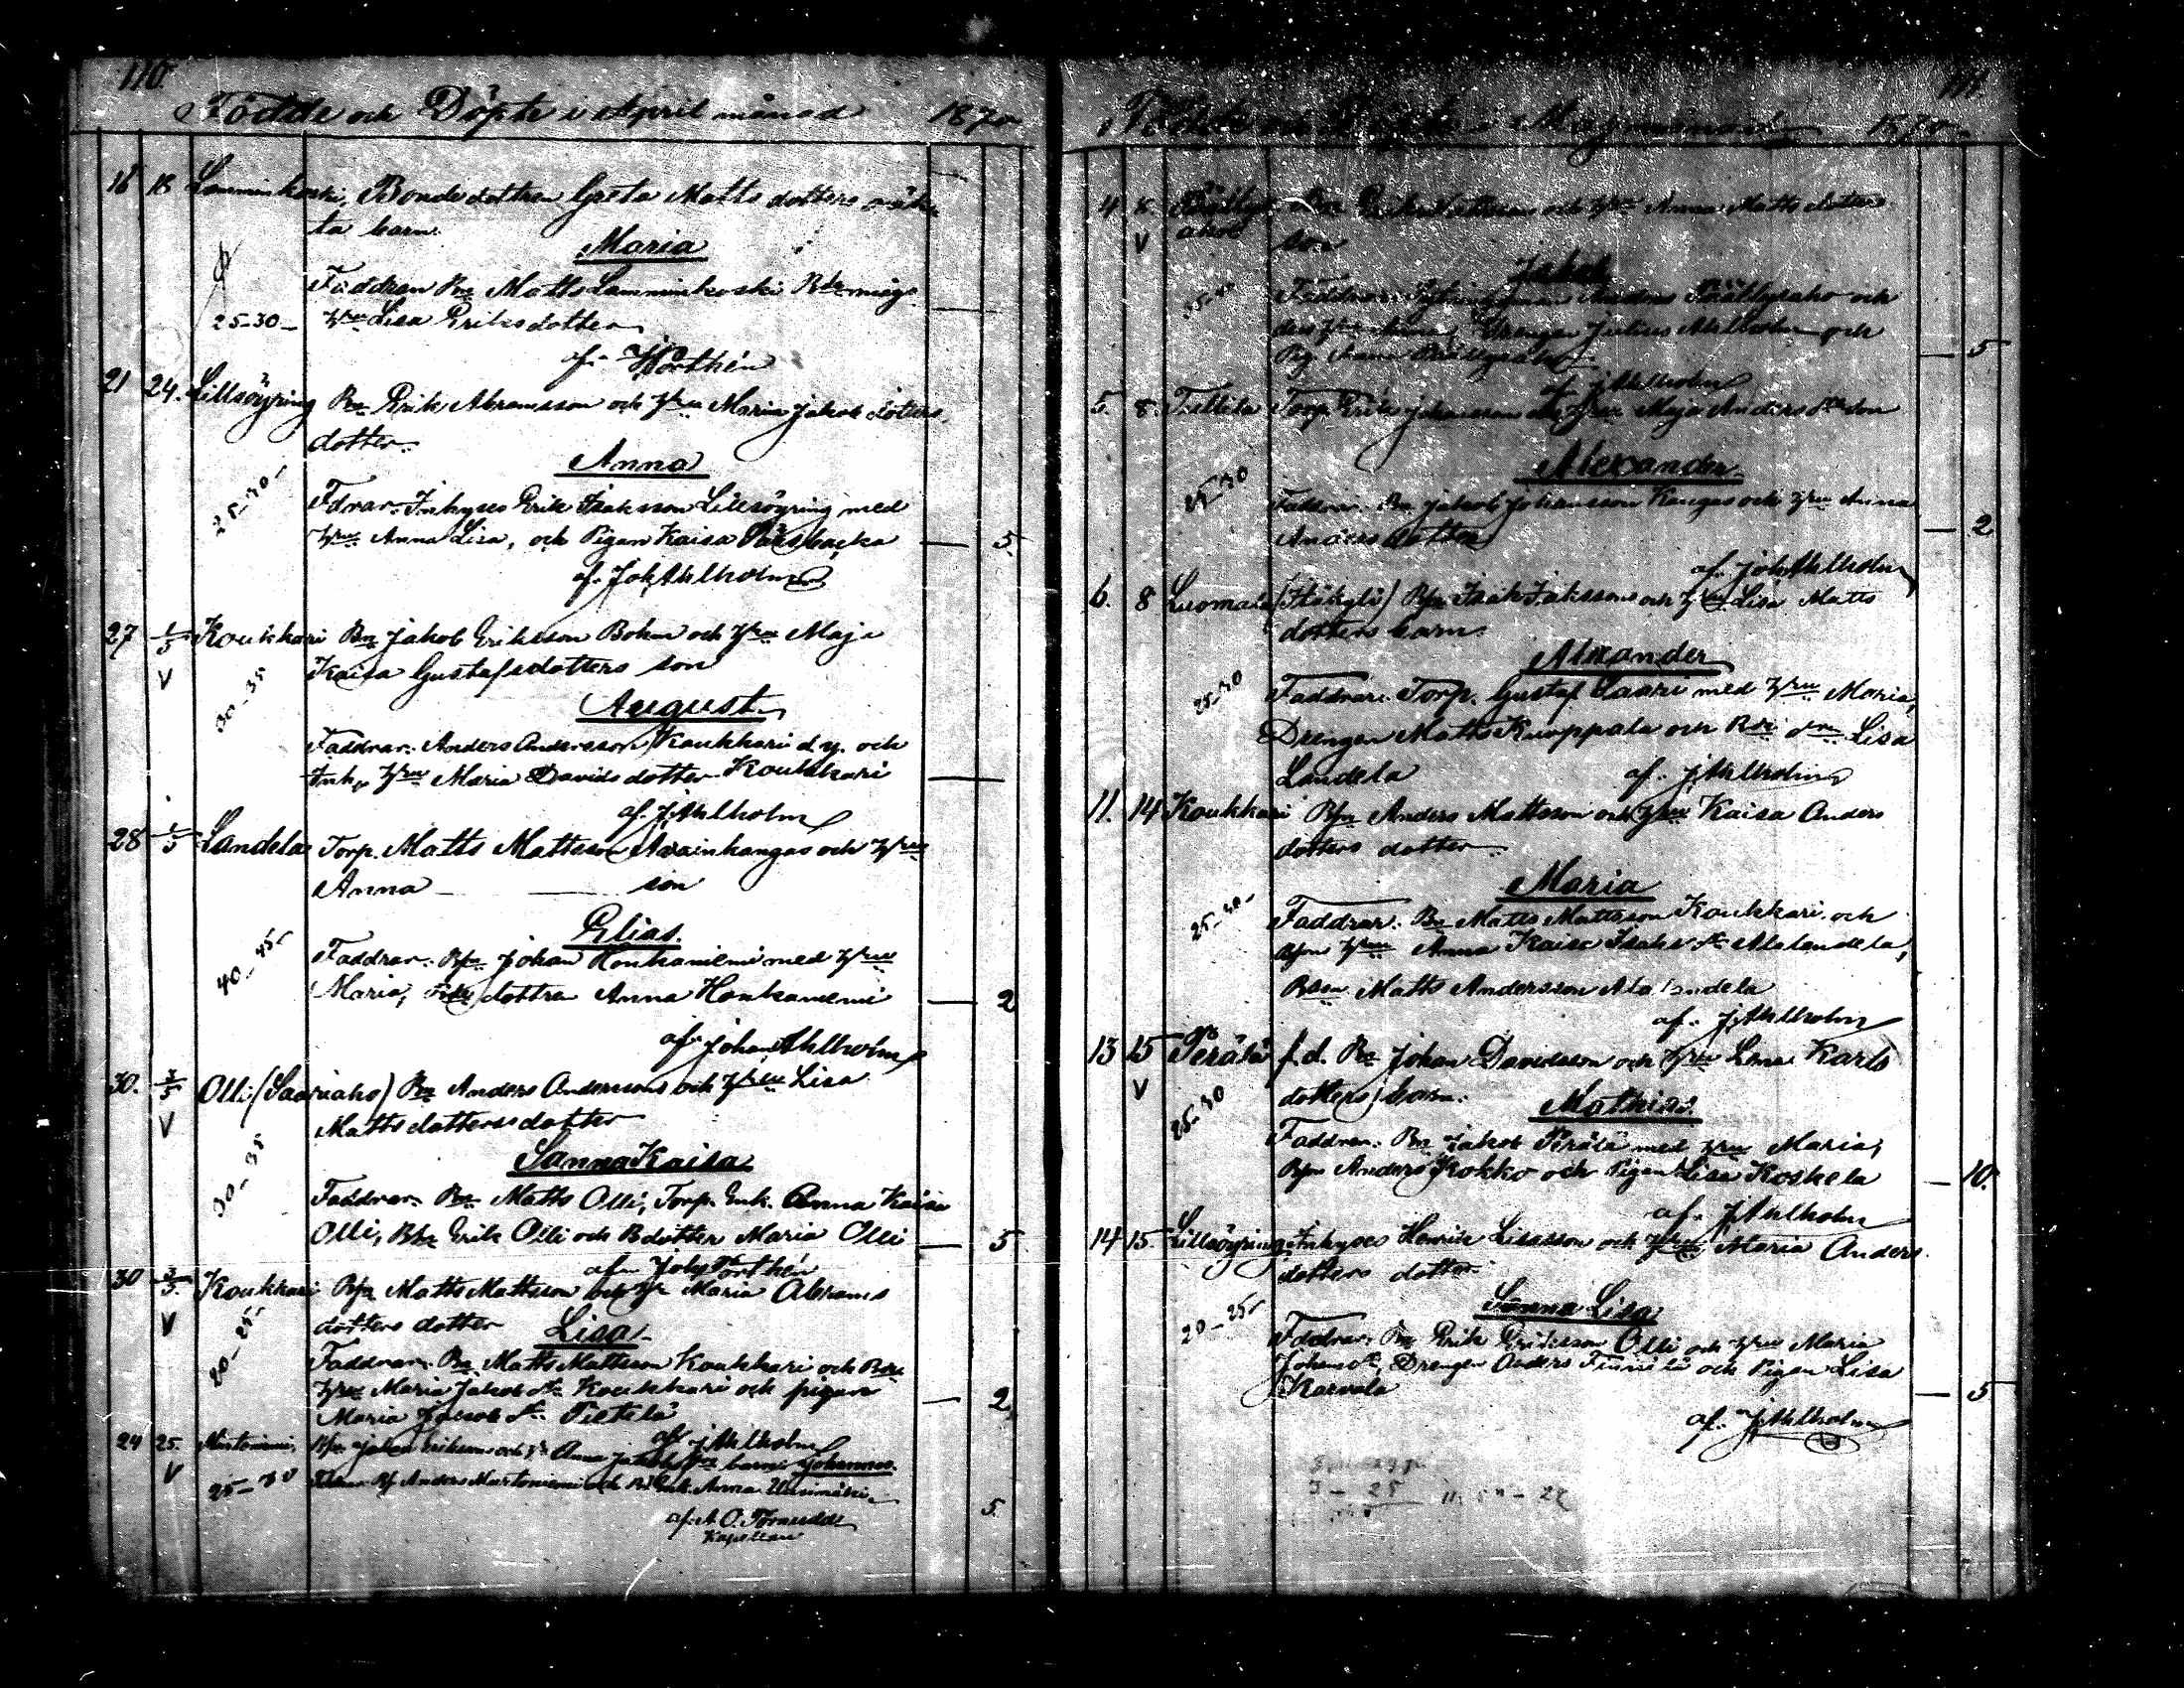 110.
Födde och Döpte i April månad 1870
16 18 Lamminkoski, Bondedottren Greta Matts dotters oäk-
ta barn.
Maria
Faddrar Bn Matts Lamminkoski
25-30- hru Lisa Eriksdotter
af Pörthén
21 24. Lillsöyring Bn Erik Abramsson och hru Maria Jakobsdotters
dotter.
Anna
25-30-
Fdrar. Inhyses Erik Isaksson Lillsöyring med
hru Anna Lisa, och Pigan Kaisa — 5.
af. Joh Ahlholm
27 1/5 Koukkari Bn Jakob Eriksson Bohm och hru Maja
V Kaisa Gustafsdotters son
30-35
August.
Faddrar. Anders Andersson Koukkari d.y. och
Inh. hru Maria Davidsdotter Koukkari —
af. J. Ahlholm
28 1/5 Landela Torp. Matts Mattsson Avainkangas och hru
Anna — son
40-45-
Elias.
Faddrar. Bn Johan Honkaniemi med hru
Maria, dottren Anna Honkaniemi — 2
af. Johan Ahlholm
30. 3/5 Olli (Saariaho) Bn Anders Andersson och hru Lisa
V Matts dotters dotter
30-35
Sanna Kaisa
Faddrar. Bn Matts Olli, Torp. Enk. Anna Kaisa
Olli, Erik Olli och Bdotter Maria Olli — 5
af Pörthén
30 3/5. Koukkari Bn Matts Mattsson och hr Maria Abrams
V dotters dotter Lisa
20-25
Faddrar. Bn Matts Mattsson Koukkari och
hru Maria Jakob dr Koukkari och pigan
Maria Jakob dr. Tietilä — 2
af J. Ahlholm
24 25. Martoniemi, Johan Eriksson och hr Anna Jakobs barn Johannes.
V
25-30 Anders Martoniemi och Enk. Anna Uusimäki.
5.
af. A. O. Törnudd
Kapellan
111.
Födde och Döpte i Maj månad 1870
4 8. Bn Erik och hru Anna Matts dotters
V aho son
Jakob
35-40
Faddrar. och
Drengen Julius Ahlholm och
Pig. Anna — 5
af J Ahlholm
5. 8. Tietilä Torp. Erik Johansson och hru Maja Anders dr son
Alexander.
25-30
Faddrar. Bn Jakob Johansson Kangas och hru Anna
Anders dotter — 2
af. Joh Ahlholm
6. 8 Luomala Isak Isaksson och hru Lisa Matts
dotters barn.
Alexander
25-30
Faddrar. Torp. Gustaf Saari med hru Maria,
Drengen Matts Knuppala och Lisa
Landela af. J. Ahlholm
11. 14 Koukkari Anders Mattsson och hru Kaisa Anders
dotters dotter.
Maria
25-30-
Faddrar. Bn Matts Mattsson Koukkari och
hru Anna Kaisa Isaks dr Alalandela,
Matts Andersson Alalandela
af. J. Ahlholm
13 15 Perälä f.d. Bn Johan Davidsson och hru Lena Karls
V dotters barn.
25-30
Mathias
Faddrar. Bn Jakob Perälä med hru Maria,
Anders Kokko och Pigan Lisa Koskela — 10.
af. J. Ahlholm
14 15. Lillsöyring Inhyses Henrik Lisasson och hru Maria Anders
dotters dotter.
Sanna Lisa
20-25-
Faddrar. Bn Erik Eriksson Olli och hru Maria
Johans dr, Drengen Anders och Pigan Lisa
Karvala — 5
af. J. Ahlholm